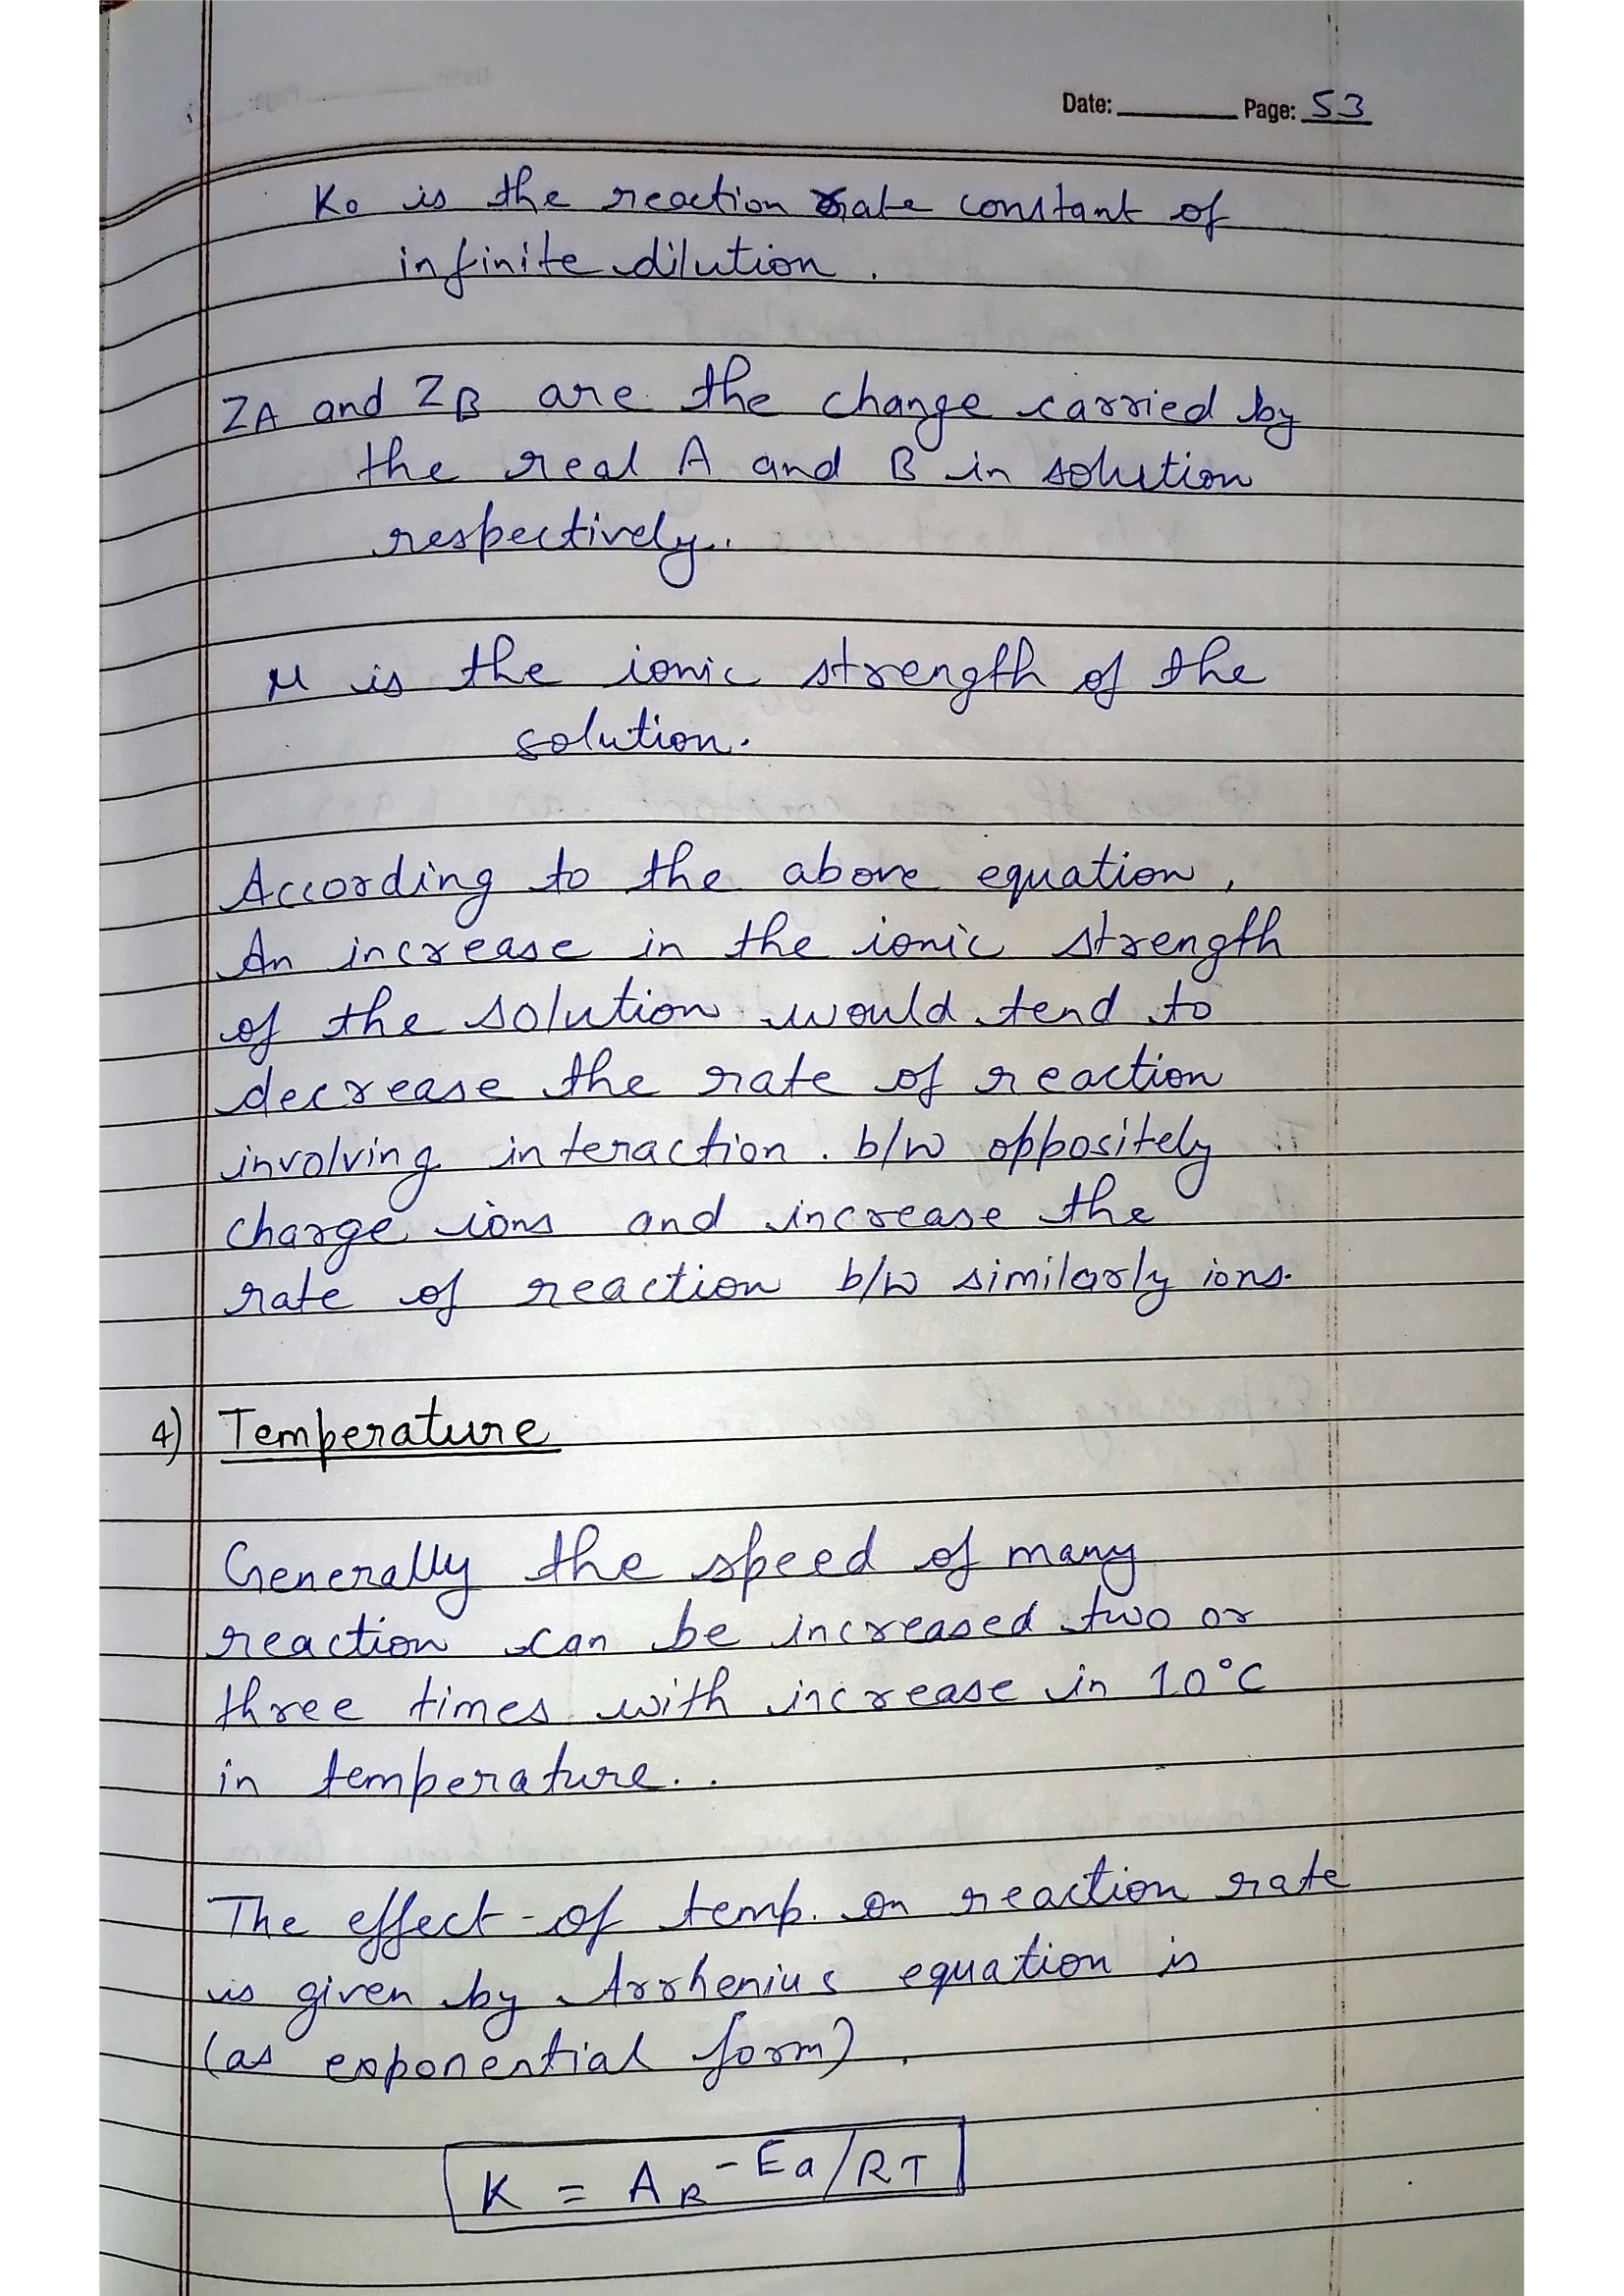 Date: ________ Page: 53
K0 is the reaction rate constant of
infinite dilution.
ZA and ZB are the change carried by
the real A and B in solution
respectively.
μ is the ionic strength of the
solution.
According to the above equation,
An increase in the ionic strength
of the solution would tend to
decrease the rate of reaction
involving interaction. b/w oppositely
charge ions and increase the
rate of reaction b/w similarly ions.
4) Temperature
Generally the speed of many
reaction can be increased two or
three times with increase in 10°C
in temperature..
The effect of temp. on reaction rate
is given by Arrhenius equation is
(as exponential form).
K = AR -Ea/RT